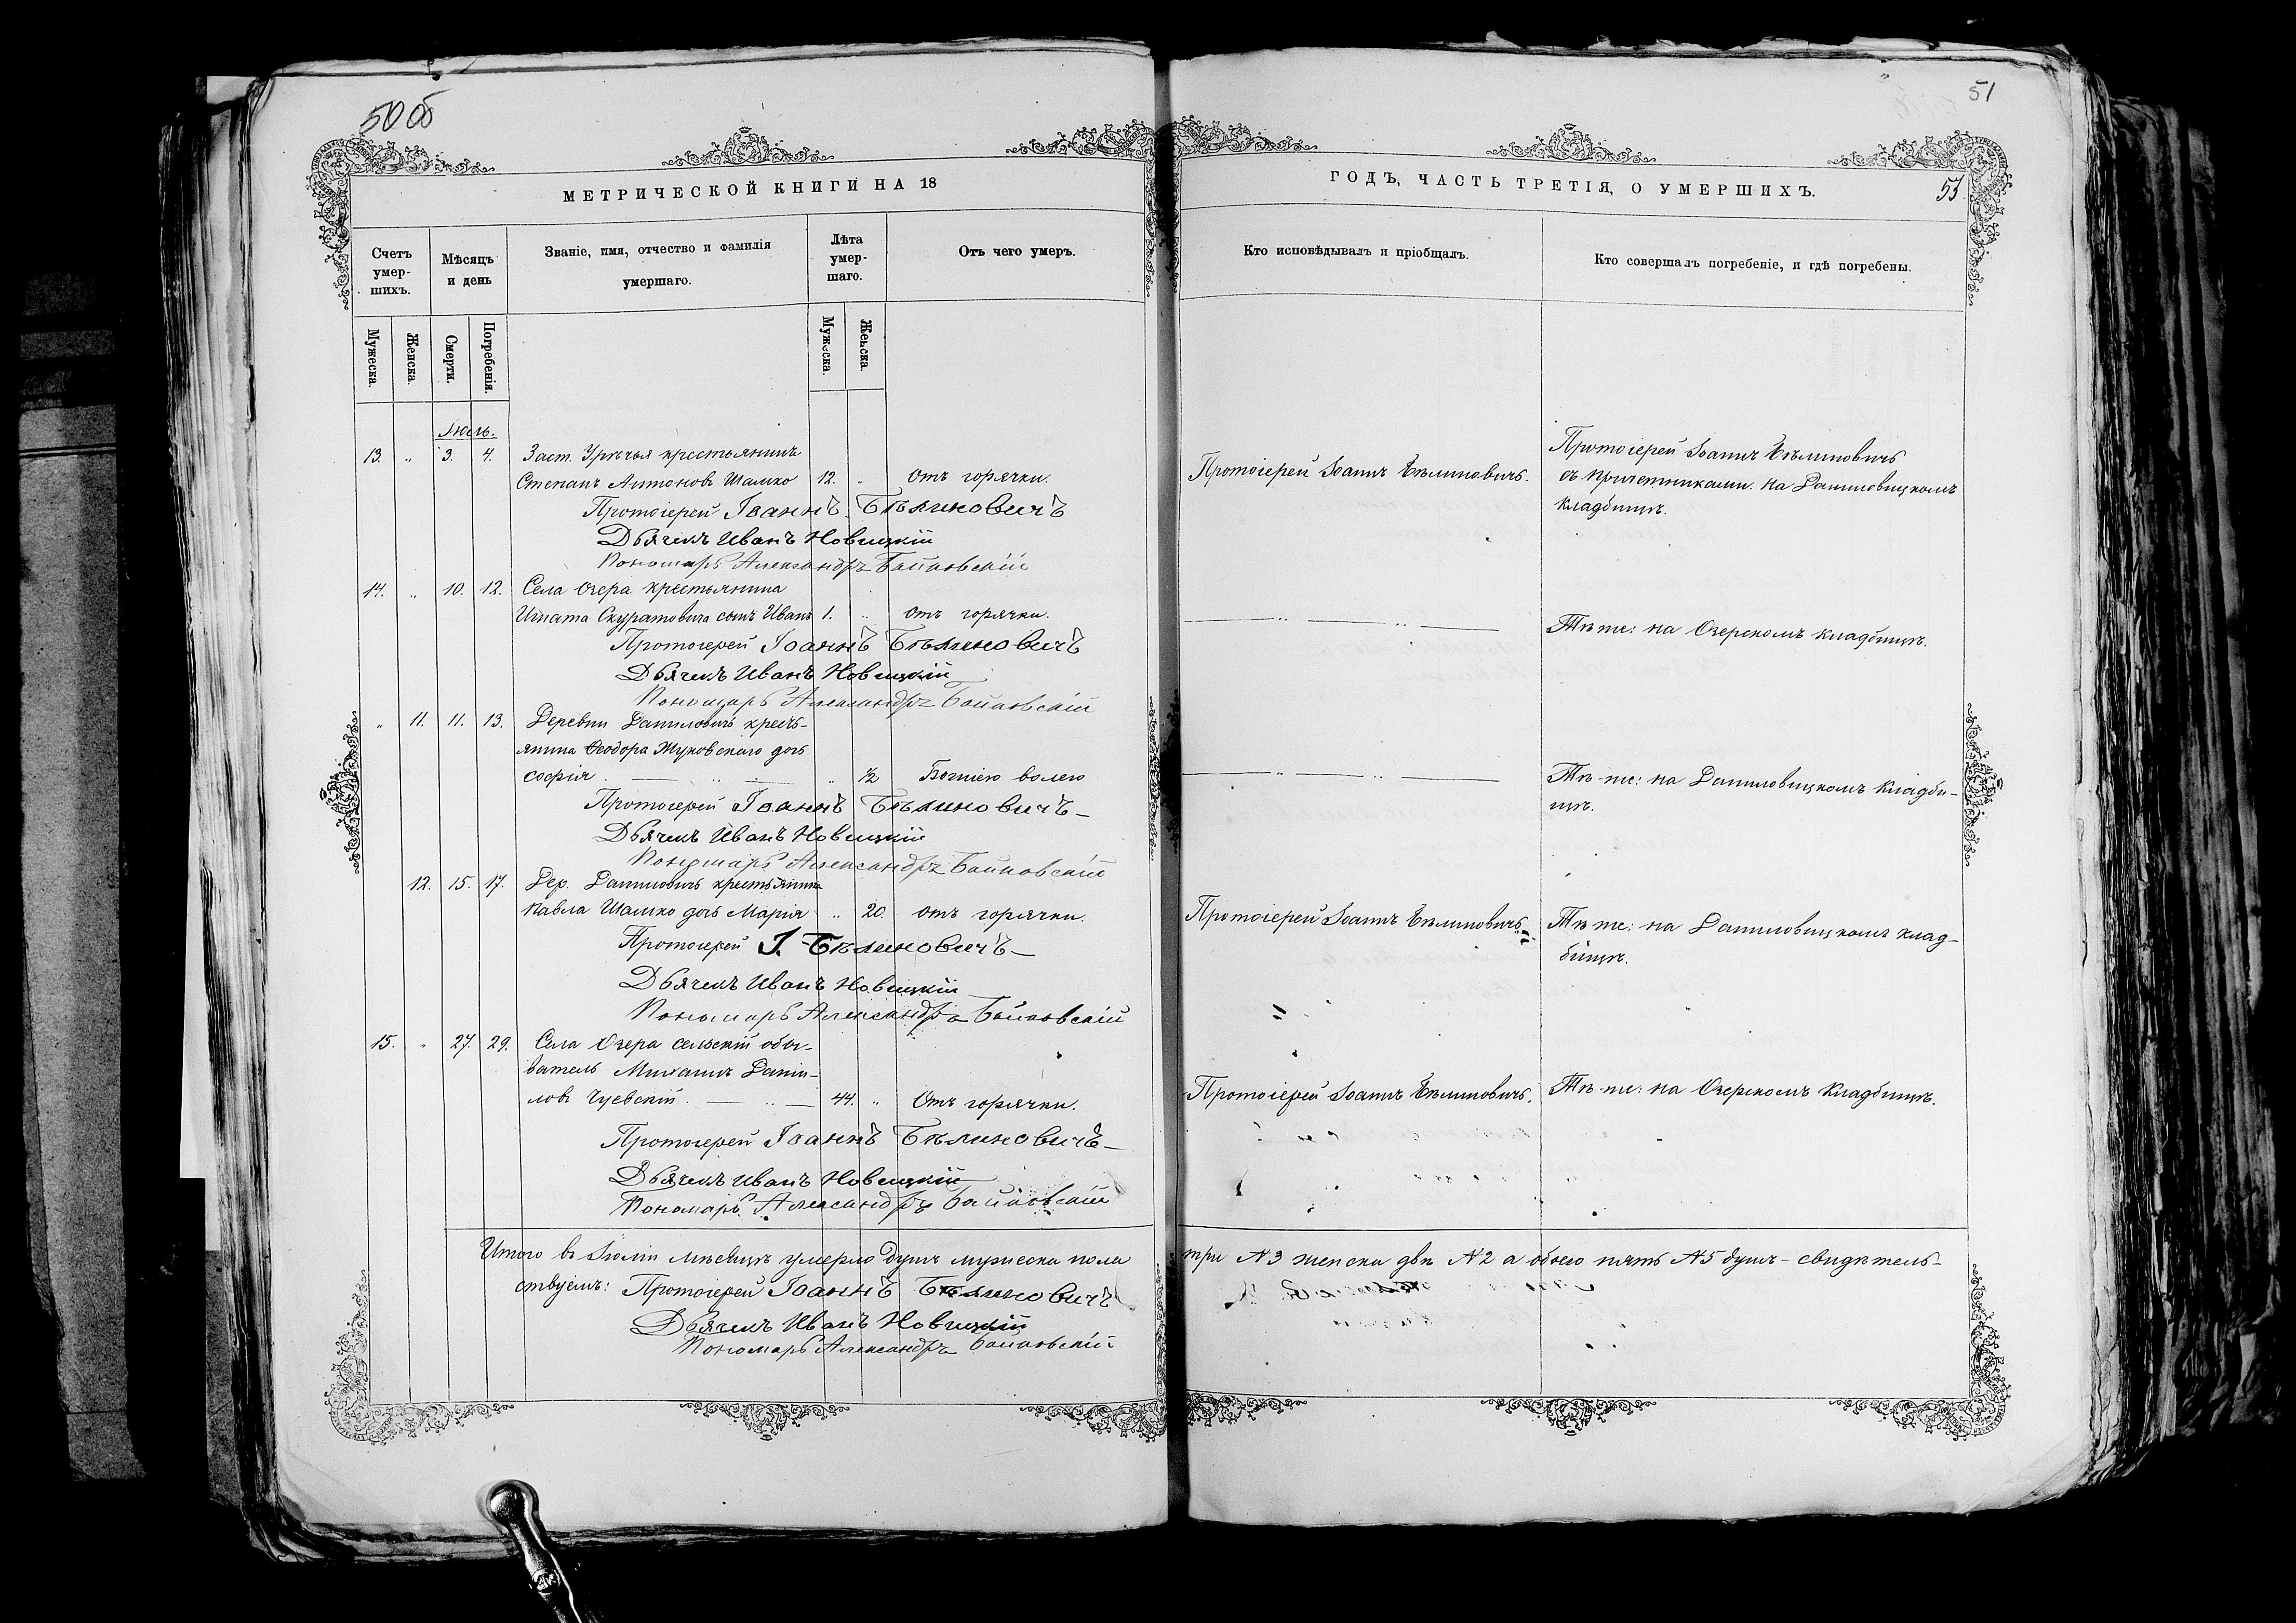 50 об
51
МЕТРИЧЕСКОЙ КНИГИ НА 18
ГОДЪ, ЧАСТЬ ТРЕТІЯ, О УМЕРШИХЪ.
53
Счетъ умер-шихъ.
Мѣсяцъ и день
Званіе, имя, отчество и фамилія
умершаго.
Лѣта умер-шаго.
Отъ чего умеръ.
Кто исповѣдывалъ и пріобщалъ.
Кто совершалъ погребеніе, и гдѣ погребены.
Мужеска.
Женска.
Смерти.
Погребенія.
Мужеска.
Женска.
Іюль.
13. „ 3. 4. Заст. Урѣчья крестьянинъ
Степанъ Антоновъ Шамко 12. „ Отъ горячки.
Протоіерей Іоаннъ Бѣлиновичъ.
Протоіерей Іоаннъ Бѣлиновичъ
съ причетниками. на Даниловицкомъ
кладбищѣ.
Протоіерей Іоаннъ Бѣлиновичъ
Дьячекъ Иванъ Новицкій
Пономарь Александръ Байковскій
14. „ 10. 12. Села Озера крестьянина
Игната Скуратовича сынъ Иванъ 1. „ Отъ горячки.
Тѣ-же: на Озерскомъ кладбищѣ.
Протоіерей Іоаннъ Бѣлиновичъ
Дьячекъ Иванъ Новицкій
Пономарь Александръ Байковскій
„ 11. 11. 13. Деревни Даниловичъ кресть-
янина Ѳеодора Жуковскаго дочь
Софія „ 1/2 Божіею волею
Тѣ-же: на Даниловицкомъ кладби-
щѣ.
Протоіерей Іоаннъ Бѣлиновичъ
Дьячекъ Иванъ Новицкій
Пономарь Александръ Байковскій
12. 15. 17. Дер. Даниловичъ крестьянина
Павла Шамко дочь Марія „ 20. отъ горячки.
Протоіерей Іоаннъ Бѣлиновичъ
Тѣ-же: на Даниловицкомъ клад-
бищѣ.
Протоіерей І. Бѣлиновичъ
Дьячекъ Иванъ Новицкій
Пономарь Александръ Байковскій
15. „ 27. 29. Села Озера сельскій обы-
ватель Михаилъ Дани-
ловъ Чуевскій 44. „ Отъ горячки.
Протоіерей Іоаннъ Бѣлиновичъ.
Тѣ-же: на Озерскомъ кладбищѣ.
Протоіерей Іоаннъ Бѣлиновичъ
Дьячекъ Иванъ Новицкій
Пономарь Александръ Байковскій
Итого въ Іюлѣ мѣсяцѣ умерло душъ мужеска пола три №3 женска двѣ №2 а обоего пять №5 душъ - свидѣтель-
ствуемъ: Протоіерей Іоаннъ Бѣлиновичъ
Дьячекъ Иванъ Новицкій
Пономарь Александръ Байковскій